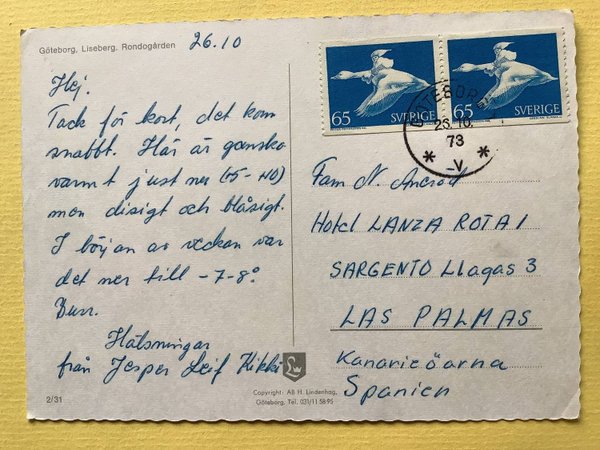 Göteborg, Liseberg. Rondogården
26.10
Hej.
Tack för kort, det kom
snabbt. Här är ganska
varmt just nu
men disigt och blåsigt.
I början av veckan var
det ner till -7-8°
Burr.
Hälsningar
från Jesper Leif Kikki
2/31
Copyright: AB H. Lindenhag,
Göteborg. Tel. 031/11 58 95
65 SVERIGE
65 SVERIGE
GÖTEBORG
26.10.
73
* -V- *
Fam N.
Hotel LANZAROTA 1
SARGENTO Llagas 3
LAS PALMAS
Kanarieöarna
Spanien